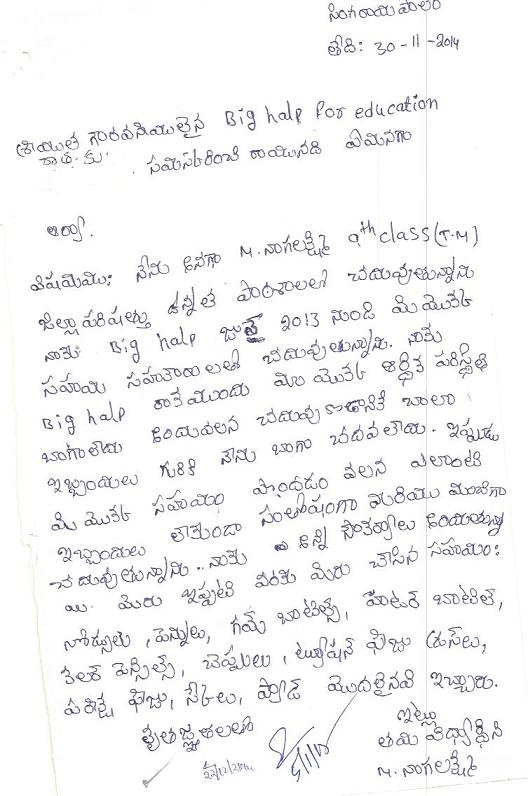 సింగరాయపాలెం
తేది: 30-11-2014
శ్రీయుత గౌరవనీయులైన Big halp for education
వారికి సమస్కరించి రాయునది ఏమనగా
ఆర్యా.
విషయము: నేను అనగా M. నాగలక్ష్మి 9th class (T.M)
జిల్లా పరిషత్తు ఉన్నత పాఠశాలలో చదువుతున్నాను
నాకు Big halp జున్ 2013 నుండి మీ యొక్క
సహాయ సహకారాలతో చదువుతున్నాను. నాకు
Big halp రాక ముందు మా యొక్క ఆర్థిక పరిస్థితి
బాగాలేదు అందువలన చదువుకొడానికి చాలా
ఇబ్బందులు గురికి నేను బాగా చదవలేదు. ఇప్పుడు
మీ యొక్క సహాయం పొందడం వలన ఎలాంటి
ఇబ్బందులు లేకుండా సంతోషంగా మరియు మంచిగా
చదువుతున్నాను.. నాకు అన్ని సౌకర్యాలు
యి. మీరు ఇప్పటి వరకు మీరు చేసిన సహాయం:
నోట్సులు, పెన్నులు, గమ్ బాటిల్స్, వాటర్ బాటిల్,
కలర్ పెన్సిల్స్, చెప్పులు, ట్యూషన్ ఫిజు డ్రస్‌లు,
పరీక్ష ఫిజు, స్కేలు, ప్యాడ్ మొదలైనవి ఇచ్చారు.
కృతజ్ఞతలతో
ఇట్లు
తమ విధ్యార్థిని
M. నాగలక్ష్మి